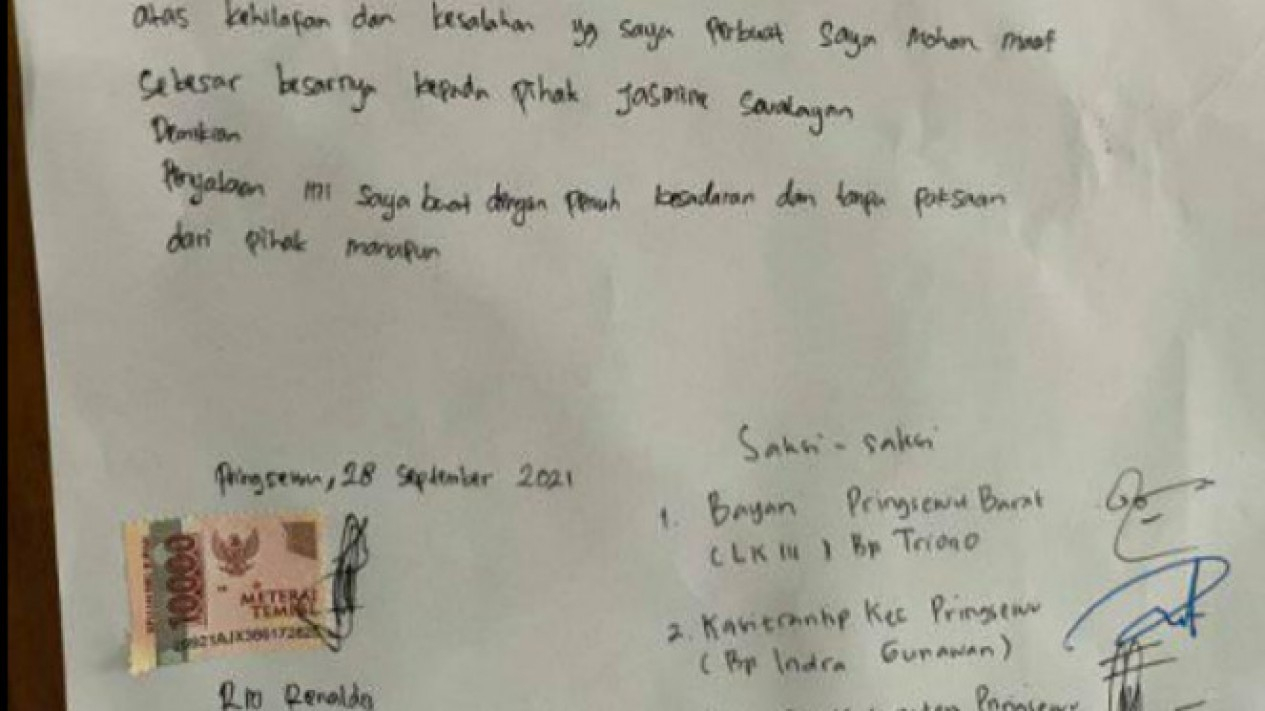 atas kehilafan dan kesalahan yg saya perbuat saya mohon maaf
sebesar besarnya kepada pihak Jasmine Swalayan
Demikian
Penyataan ini saya buat dengan penuh kesadaran dan tanpa paksaan
dari pihak manapun
Saksi - saksi
Pringsewu, 28 September 2021
1. Bayan Pringsewu Barat
(LK III) Bp Triono
10000
METERAI
TEMPEL
2. Kasitrantip Kec Pringsewu
(Bp Indra Gunawan)
Rio Renaldo
Pringsewu